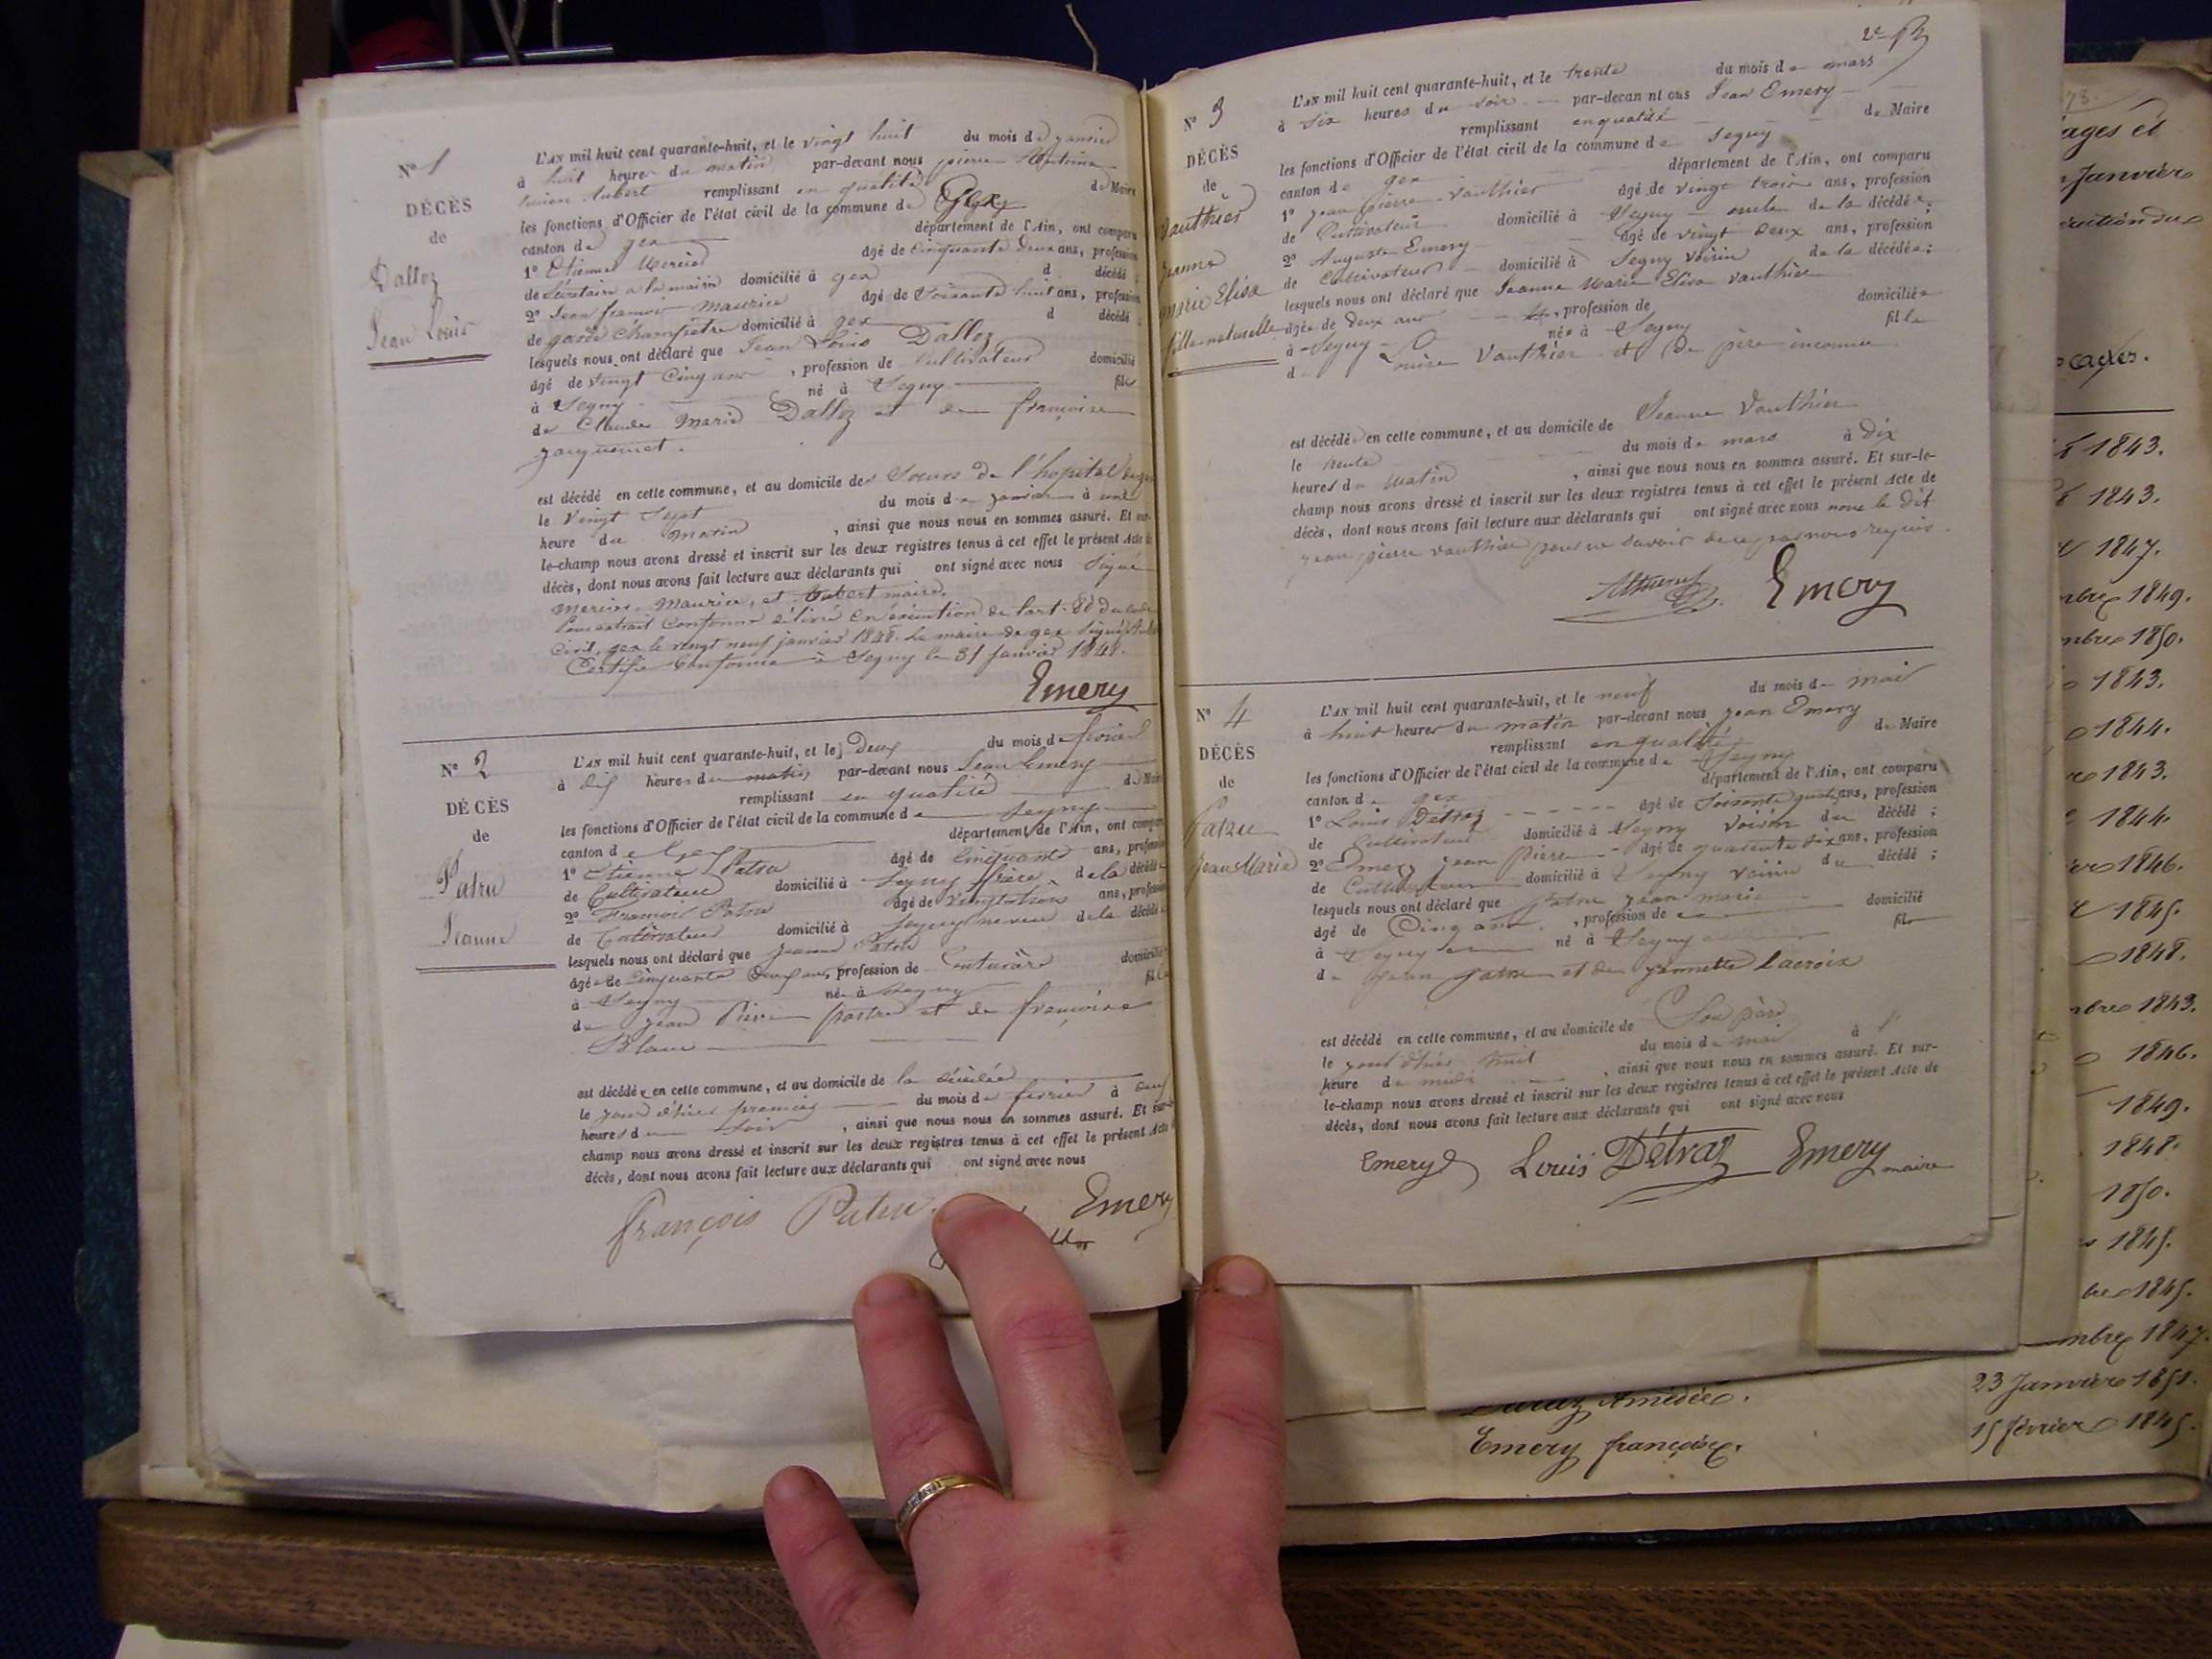 N° 1
DÉCÈS
de
Dalloz
Jean Louis
L'AN mil huit cent quarante-huit, et le vingt huit du mois de janvier
à huit heures du matin par-devant nous pierre Antoine
Aubert remplissant en qualité de Maire
les fonctions d'Officier de l'état civil de la commune de Gex
canton de gex département de l'Ain, ont comparu
1° Etienne Mercier âgé de Cinquante deux ans, profession
de Sécretaire a la mairie domicilié à gex d décédé ;
2° Jean françois maurice âgé de Soixante huit ans, profession
de garde Champetre domicilié à gex d décédé ;
lesquels nous ont déclaré que Jean Louis Dalloz
âgé de vingt Cinq ans , profession de Cultivateur domicilié
à Segny né à Segny fils
de Claude Marie Dalloz et de françoise
jacquemet.
est décédé en cette commune, et au domicile des Soeurs de l'hopital
le vingt Sept du mois de janvier à une
heure du matin , ainsi que nous nous en sommes assuré. Et sur-
le-champ nous avons dressé et inscrit sur les deux registres tenus à cet effet le présent Acte de
décès, dont nous avons fait lecture aux déclarants qui ont signé avec nous Signé
Mercier, Maurice, et Aubert maire.
Pour extrait Conforme délivré en exécution de l'art. 80 du code
Civil, gex le vingt neuf janvier 1848. Le maire de gex Signé
Certifié Conforme à Segny le 31 janvier 1848.
Emery
N° 2
DÉCÈS
de
Patru
Jeanne
L'AN mil huit cent quarante-huit, et le Deux du mois de fevrier
à dix heures du matin par-devant nous Jean Emery
remplissant en qualité de Maire
les fonctions d'Officier de l'état civil de la commune de Segny
canton de Gex département de l'Ain, ont comparu
1° Etienne Patru âgé de Cinquante ans, profession
de Cultivateur domicilié à Segny frère de la décédée
2° François Patru âgé de vingt trois ans, profession
de Cultivateur domicilié à Segny neveu de la décédée
lesquels nous ont déclaré que Jeanne Patru
âgée de Cinquante Deux ans, profession de Couturière domiciliée
à Segny née à Segny fille
de jean Pierre patru et de françoise
Blanc
est décédée en cette commune, et au domicile de la décédée
le jour d'hier premier du mois de fevrier à
heures du Soir , ainsi que nous nous en sommes assuré. Et sur-le-
champ nous avons dressé et inscrit sur les deux registres tenus à cet effet le présent Acte
décès, dont nous avons fait lecture aux déclarants qui ont signé avec nous
françois Patru Emery
N° 3
DÉCÈS
de
Vauthier
Jeanne
Marie Elisa
fille naturelle
L'AN mil huit cent quarante-huit, et le trente du mois de mars
à Six heures du soir par-devant nous Jean Emery
remplissant en qualité de Maire
les fonctions d'Officier de l'état civil de la commune de Segny
canton de gex département de l'Ain, ont comparu
1° jean pierre Vauthier âgé de vingt trois ans, profession
de Cultivateur domicilié à Segny oncle de la décédée ;
2° Auguste Emery âgé de vingt Deux ans, profession
de Cultivateur domicilié à Segny voisin de la décédée ;
lesquels nous ont déclaré que Jeanne Marie Elisa Vauthier
âgée de Deux ans , profession de domiciliée
à Segny née à Segny fille
d Louise Vauthier et de père inconnu
est décédée en cette commune, et au domicile de Jeanne Vauthier
le trente du mois de mars à dix
heures du matin , ainsi que nous nous en sommes assuré. Et sur-le-
champ nous avons dressé et inscrit sur les deux registres tenus à cet effet le présent Acte de
décès, dont nous avons fait lecture aux déclarants qui ont signé avec nous non le dit
jean pierre Vauthier pour ne savoir de ce par nous requis.
Emery
N° 4
DÉCÈS
de
Patru
Jean Marie
L'AN mil huit cent quarante-huit, et le neuf du mois de mai
à huit heures du matin par-devant nous jean Emery
remplissant en qualité de Maire
les fonctions d'Officier de l'état civil de la commune de Segny
canton de gex département de l'Ain, ont comparu
1° Louis Détraz âgé de Soixante quatre ans, profession
de Cultivateur domicilié à Segny voisin du décédé ;
2° Emery jean Pierre âgé de quarante six ans, profession
de Cultivateur domicilié à Segny voisin du décédé ;
lesquels nous ont déclaré que Patru jean marie
âgé de Cinq ans , profession de domicilié
à Segny né à Segny fils
de Jean patru et de jeannette Lacroix
est décédé en cette commune, et au domicile de Son père
le jour d'hier huit du mois de mai à 1
heure de midi , ainsi que nous nous en sommes assuré. Et sur-
le-champ nous avons dressé et inscrit sur les deux registres tenus à cet effet le présent Acte de
décès, dont nous avons fait lecture aux déclarants qui ont signé avec nous
Emery Louis Détraz Emery maire
Janvier
1843.
1843.
1847.
1849.
1850.
1843.
1844.
1843.
1844.
1846.
1845.
1848.
1843.
1846.
1849.
1848.
1850.
1845.
1845.
1847.
Amédée. 23 Janvier 1851.
Emery françoise. 15 février 1845.